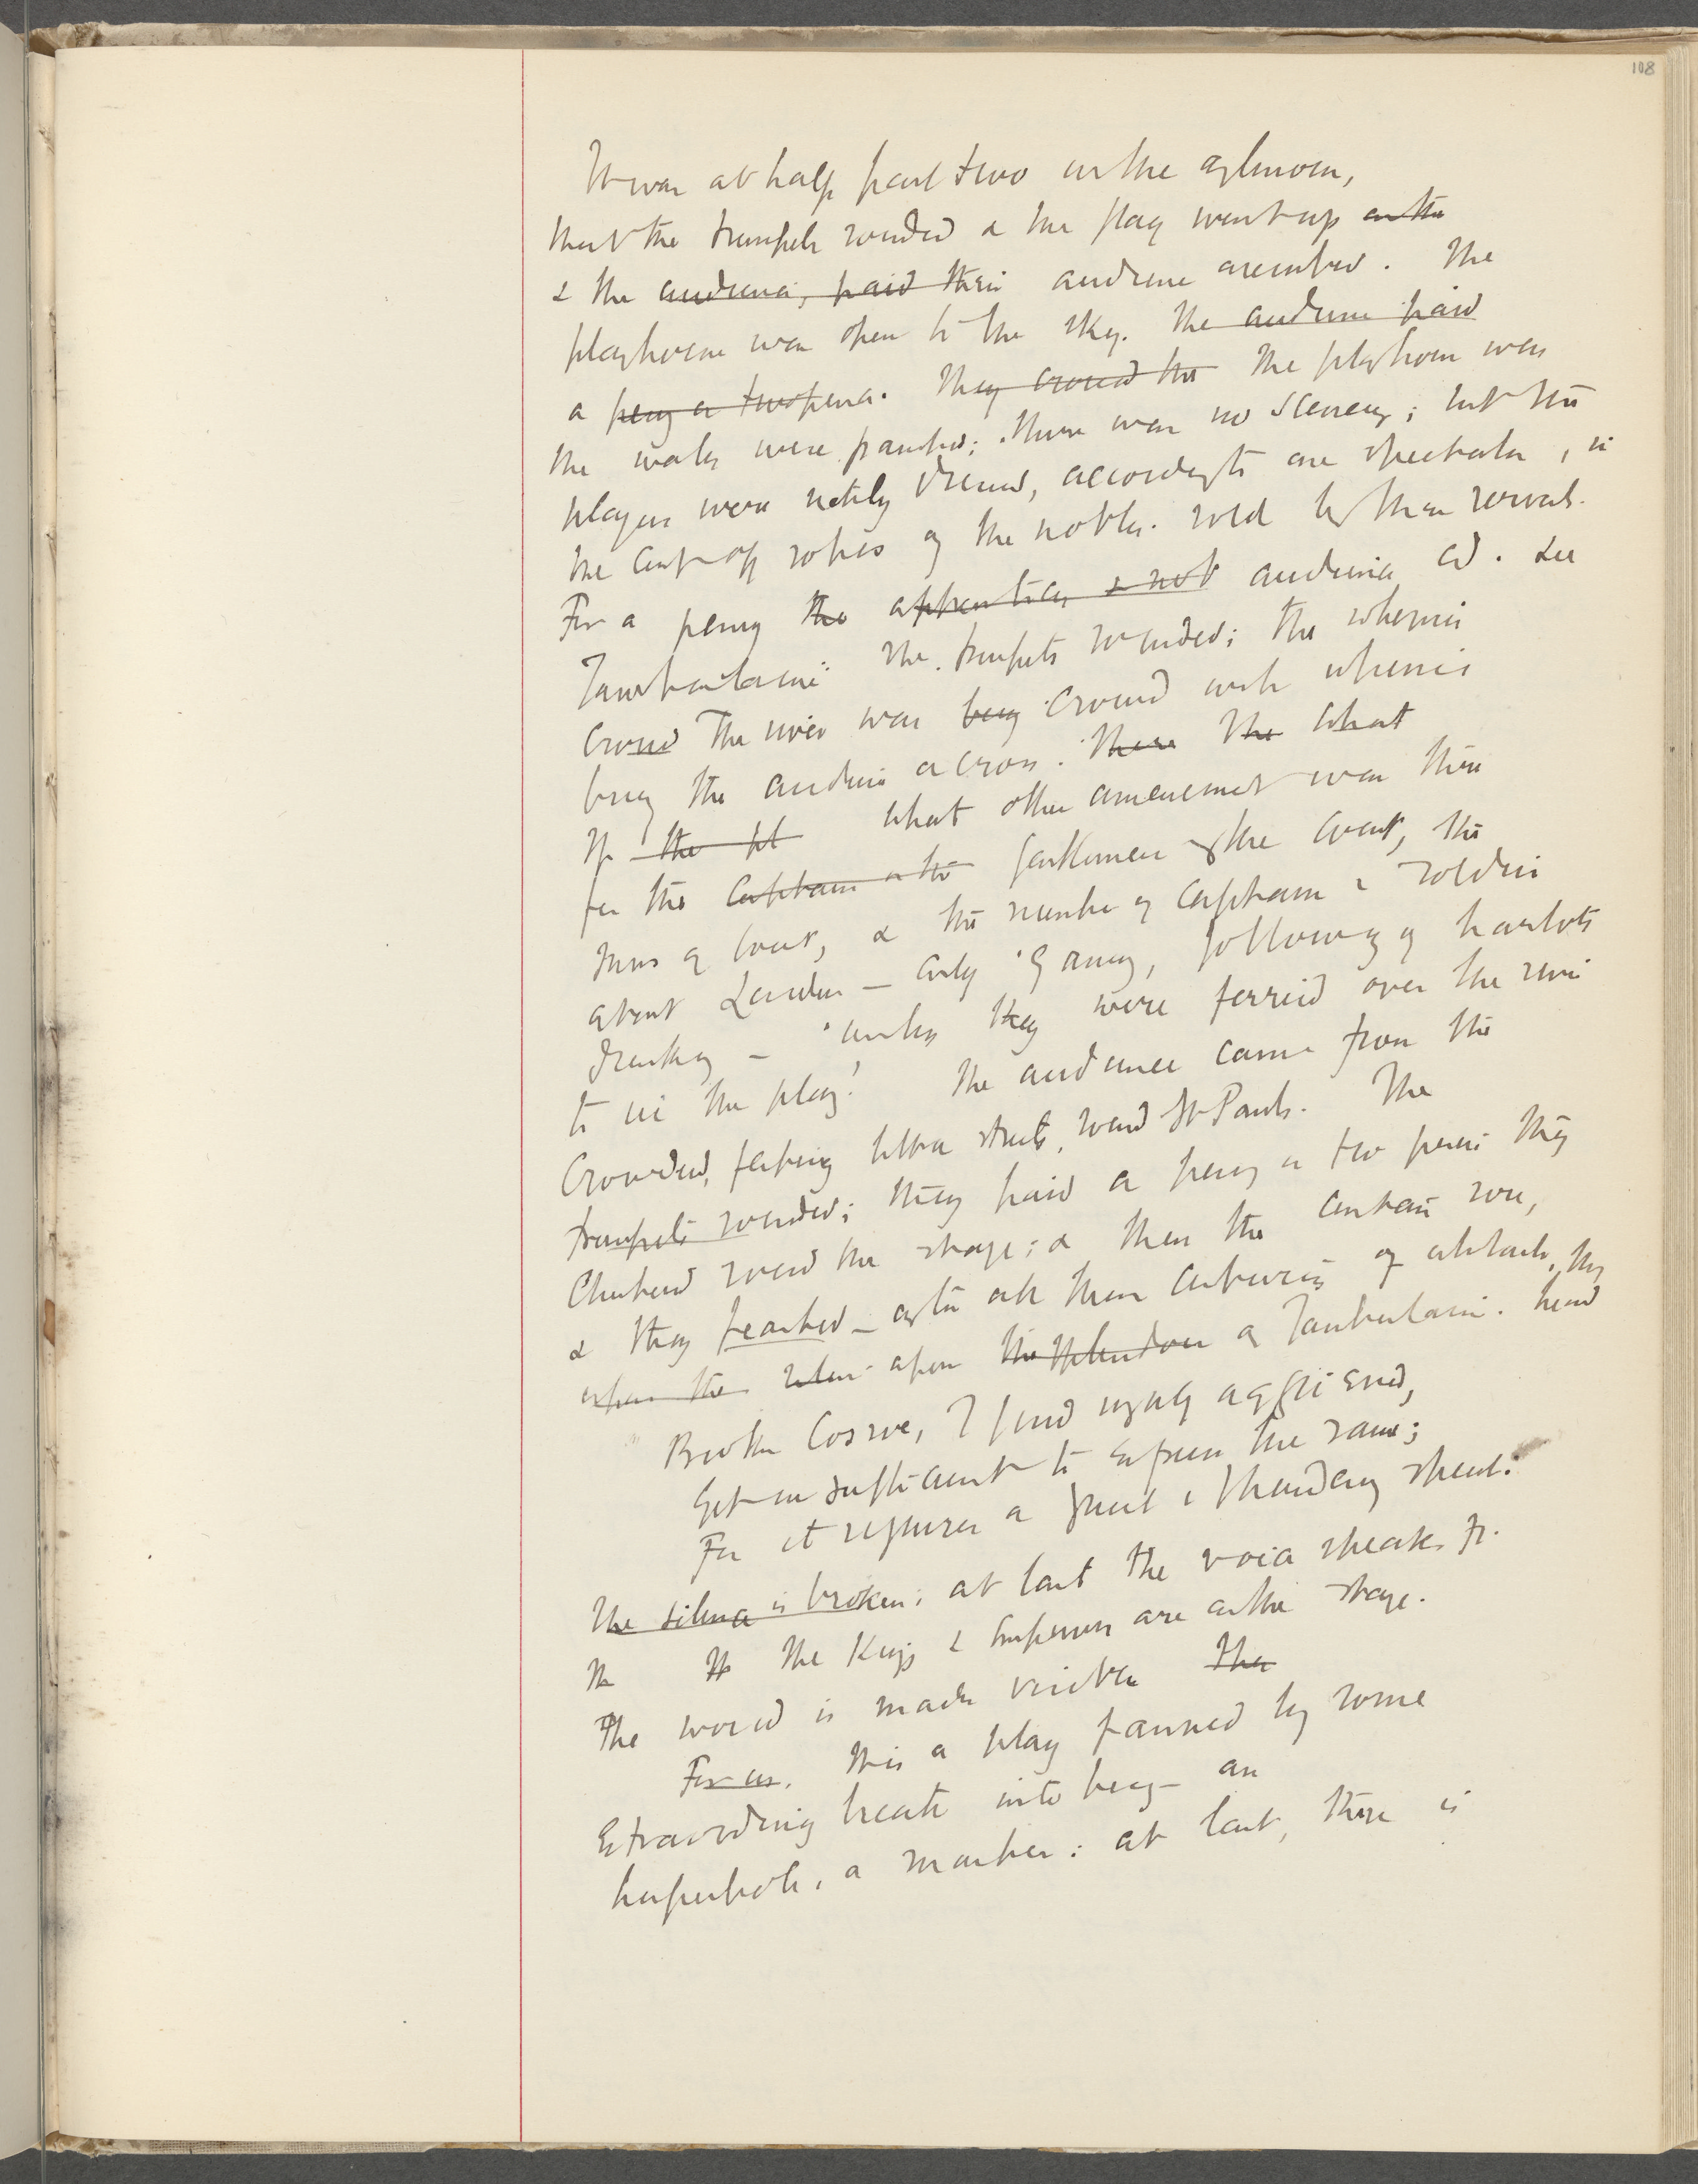 108
It was at half past two in the afternoon,
that the trumpets sounded & the flag went up on the
& the audience, paid their audience assembled. The
playhouse was open to the sky. The audience paid
a penny or twopence. They crowd the The playhouse was
the walls were painted; there was no scenery; but the
players were richly dressed, according to one spectator, in
the cast off robes of the nobles. sold by their servants.
For a penny the apprentices & not audience cd. see
Tamburlaine" The trumpets sounded; the wherries
crowd The river was busy crowded with wherries
bring the audience across. There The What
If the pl what other amusement was there
for the Captains or the gentlemen of the Court, the
Inns of Court, & the number of captains & soldiers
about London — only gaming, following of harlots
drinking — unless they were ferried over the river
to see the play! The audience came from the
crowded, little streets, round St Pauls. The
trumpets sounded; they paid a penny or two pence they
clustered round the stage; & then the curtain rose,
& they feasted — after all these centuries of silence, they
upon the silence upon the splendour of Tamburlaine. heard
Brother Cosroe, I find myself aggrieved,
Yet insufficient to express the same;
For it requires a great & thundering speech:
The silence is broken; at last the voice speaks fr.
Th Th The Kings & Emperors are on the stage.
The world is made visible The
For us, this a play fanned by some
Extraordinary breath into being — an
hyperbole, a : at last, there is